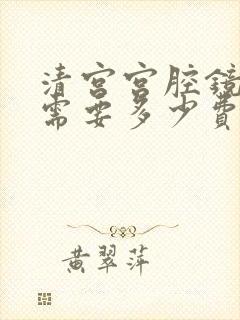 清宫宫腔镜
需要多少费
黄翠萍